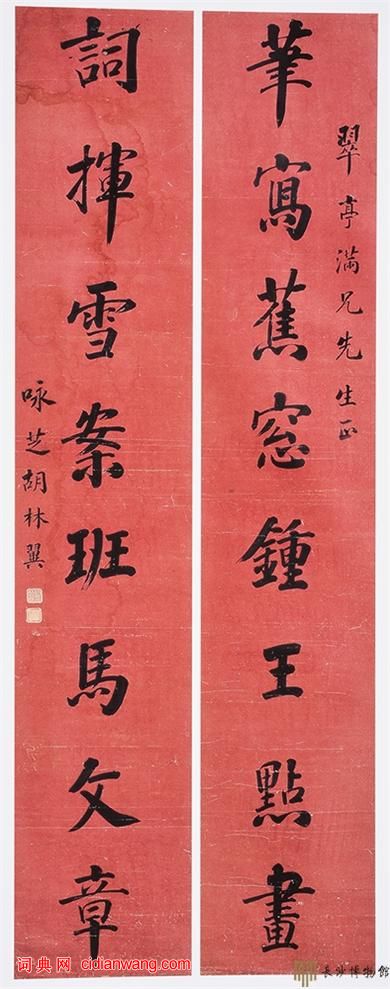 翠亭滿兄先生正
筆寫蕉窓鍾王點畫
詞揮雪案班馬文章
咏芝胡林翼
词典网 cidianwang.com
長沙博物館